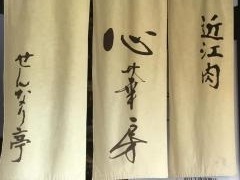 近江肉
心華房
せんなり亭